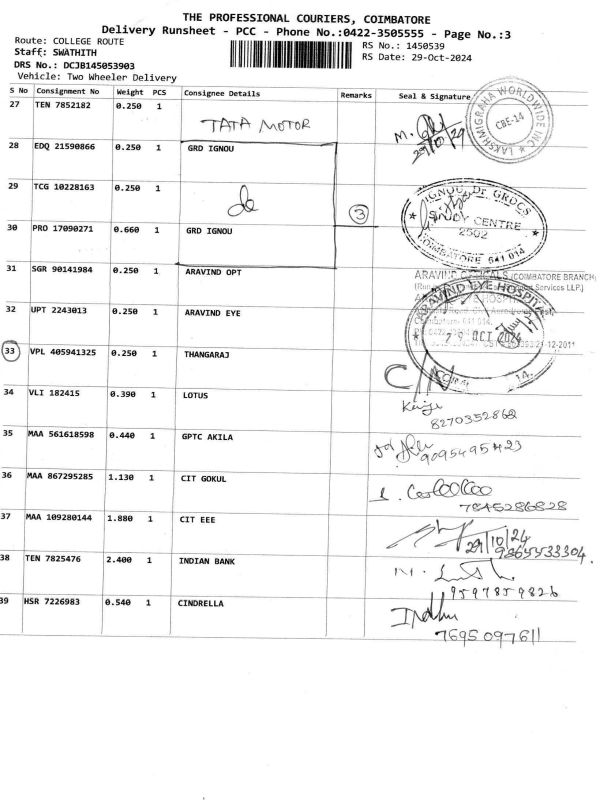 THE PROFESSIONAL COURIERS, COIMBATORE
Delivery Runsheet - PCC - Phone No.:0422-3505555 - Page No.:3
Route: COLLEGE ROUTE
RS No.: 1450539
Staff: SWATHITH
RS Date: 29-Oct-2024
DRS No.: DCJB145053903
Vehicle: Two Wheeler Delivery
S No Consignment No Weight PCS Consignee Details Remarks Seal & Signature
27 TEN 7852182 0.250 1
TATA MOTOR
29/10/24
LAKSHMIGRAHA WORLDWIDE INC
CBE-14
28 EDQ 21590866 0.250 1 GRD IGNOU
29 TCG 10228163 0.250 1
do
3
IGNOU, DF GRDCS
STUDY CENTRE
2502
COIMBATORE 641 014
30 PRO 17090271 0.660 1 GRD IGNOU
31 SGR 90141984 0.250 1 ARAVIND OPT
ARAVIND OPTICALS (COIMBATORE BRANCH)
Services LLP.)
32 UPT 2243013 0.250 1 ARAVIND EYE
ARAVIND EYE HOSPITAL
29 OCT 2024
33 VPL 405941325 0.250 1 THANGARAJ
34 VLI 182415 0.390 1 LOTUS
8270352862
35 MAA 561618598 0.440 1 GPTC AKILA
9095495423
36 MAA 867295285 1.130 1 CIT GOKUL
7845286828
37 MAA 109280144 1.880 1 CIT EEE
29/10/24
9865533304
38 TEN 7825476 2.400 1 INDIAN BANK
9597859826
39 HSR 7226983 0.540 1 CINDRELLA
Indhu
7695097611